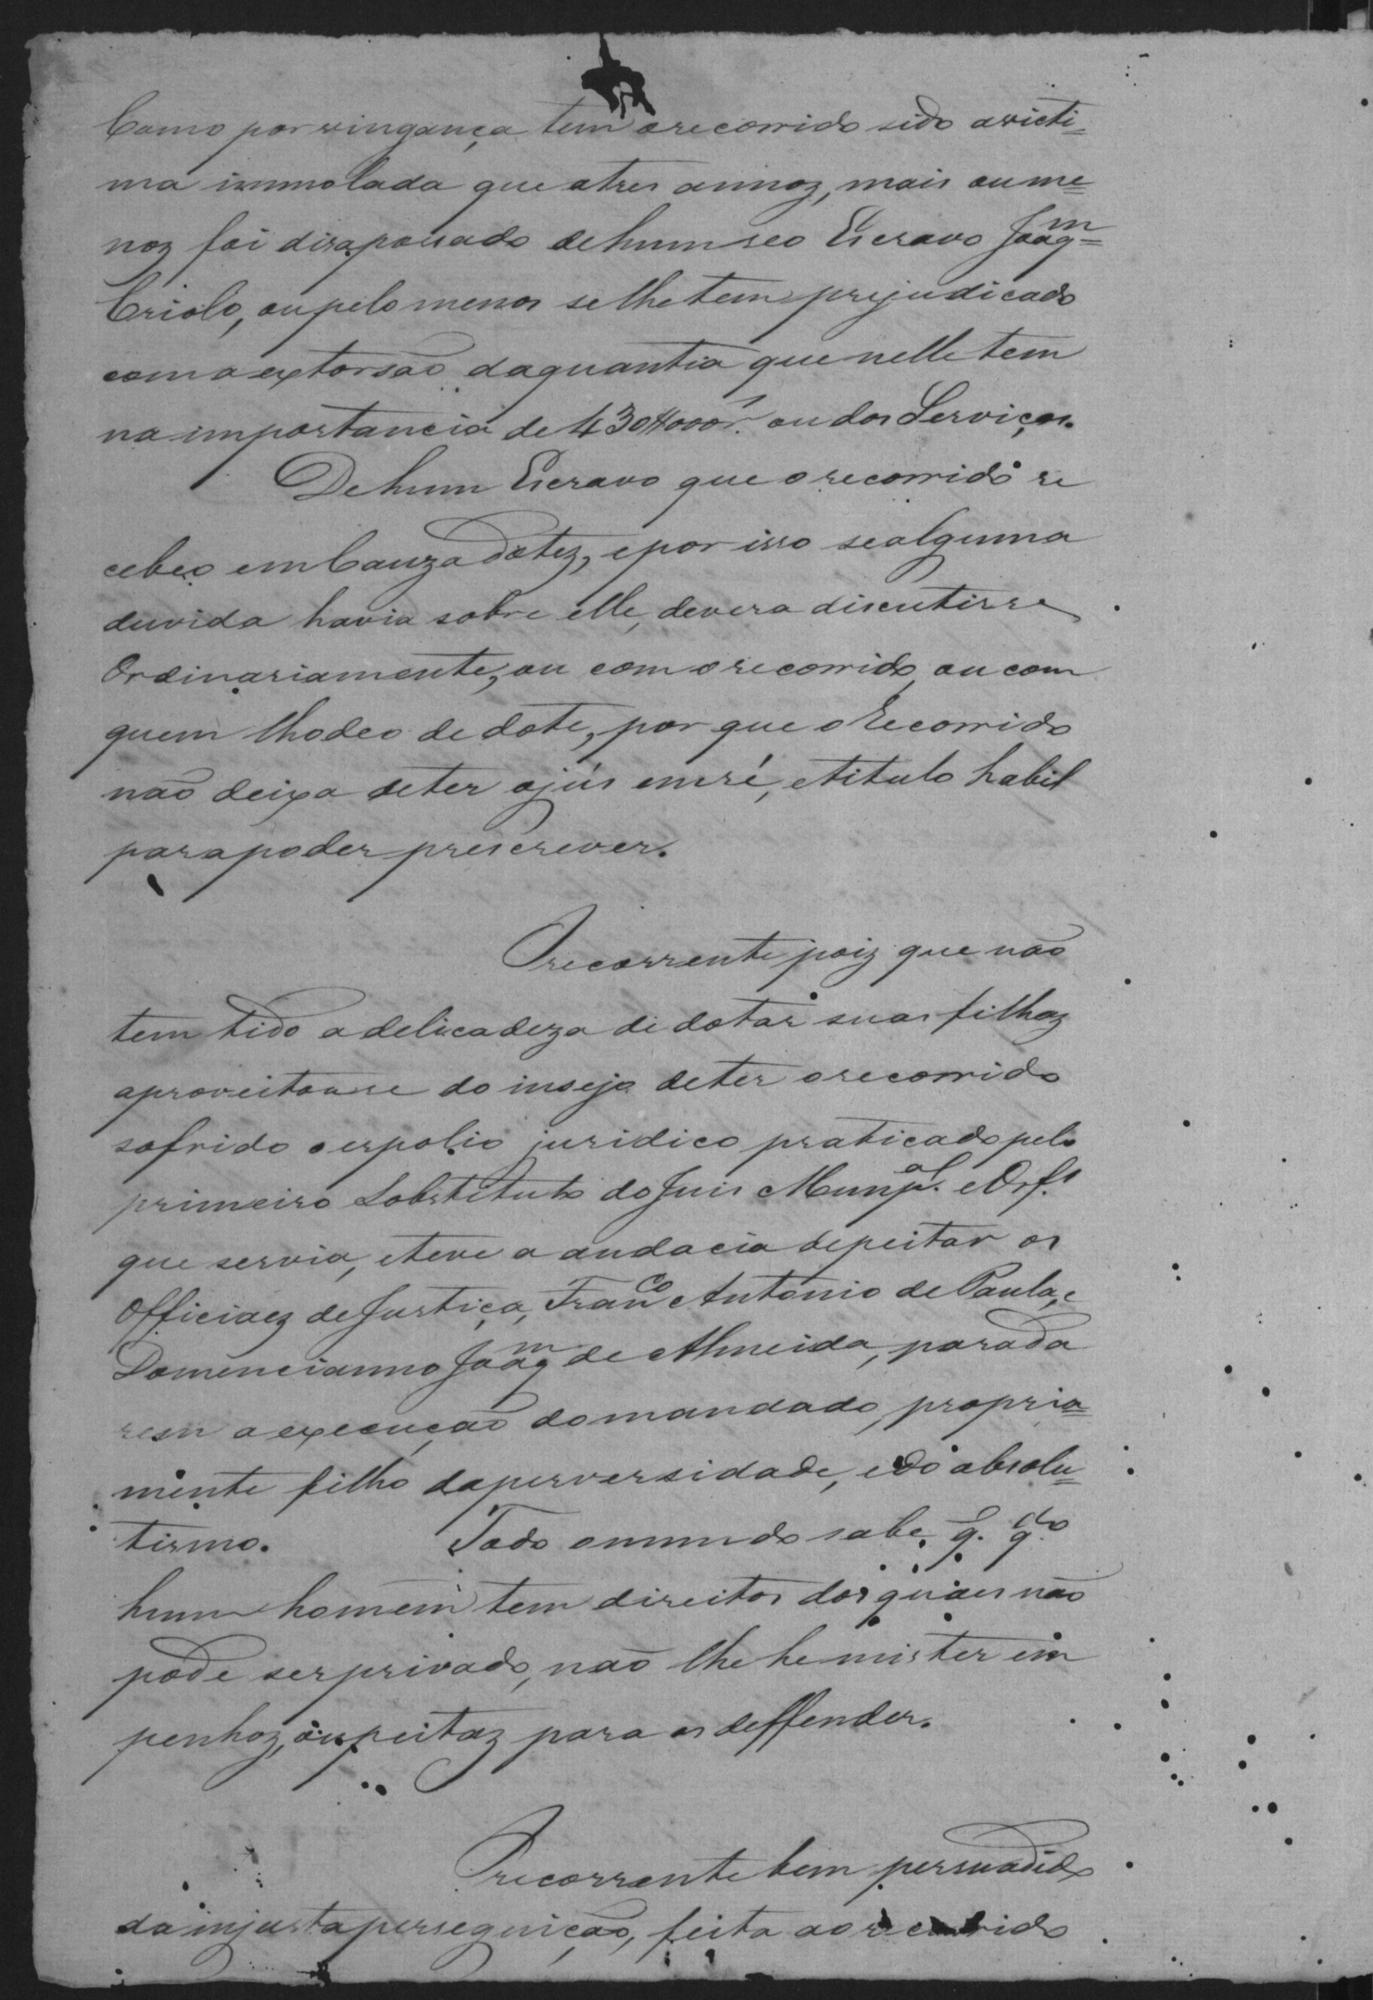 Como por vingança tem o recorrido sido a victi=
ma immolada que a tres annoz, mais ou me=
noz foi dizapossado de hum seo Escravo Joaqm=
Criolo, ou pelo menos se lhe tem prejudicado
com a extorsão da quantia que nelle tem
na importancia de 430#000 r.s ou dos Serviços.
De hum Escravo que o recorrido re
cebeo em Cauza dotez, e por isso se alguma
duvida havia sobre elle, devera discutirse
Ordinariamente, ou com o recorrido, ou com
quem lho deo de dote, por que o Recorrido
não deixa de ter o jús em ré, e titulo habil
para poder prescrever.
O recorrente poiz que não
tem tido a delicadeza di dotar suas filhaz
aproveitouse do insejo de ter o recorrido
sofrido o espolio juridico praticado pelo
primeiro Sobstituto do Juis Munpal. e Orf.s
que servia, e teve a audacia de peitar os
Officiaez de Justiça, Franco Antonio de Paula, e
Domencianno Joaqm de Almeida, para da
rem a execução do mandado, propria=
mente filho da perversidade, e do absolu=
tismo. Todo o mundo sabe, q. qdo
hum homem tem direitos dos quaes não
pode ser privado, não lhe he mister em
penhoz, ou peitaz para os deffender.
O recorrente bem persuadido
da injusta perseguição, feita ao recorrido